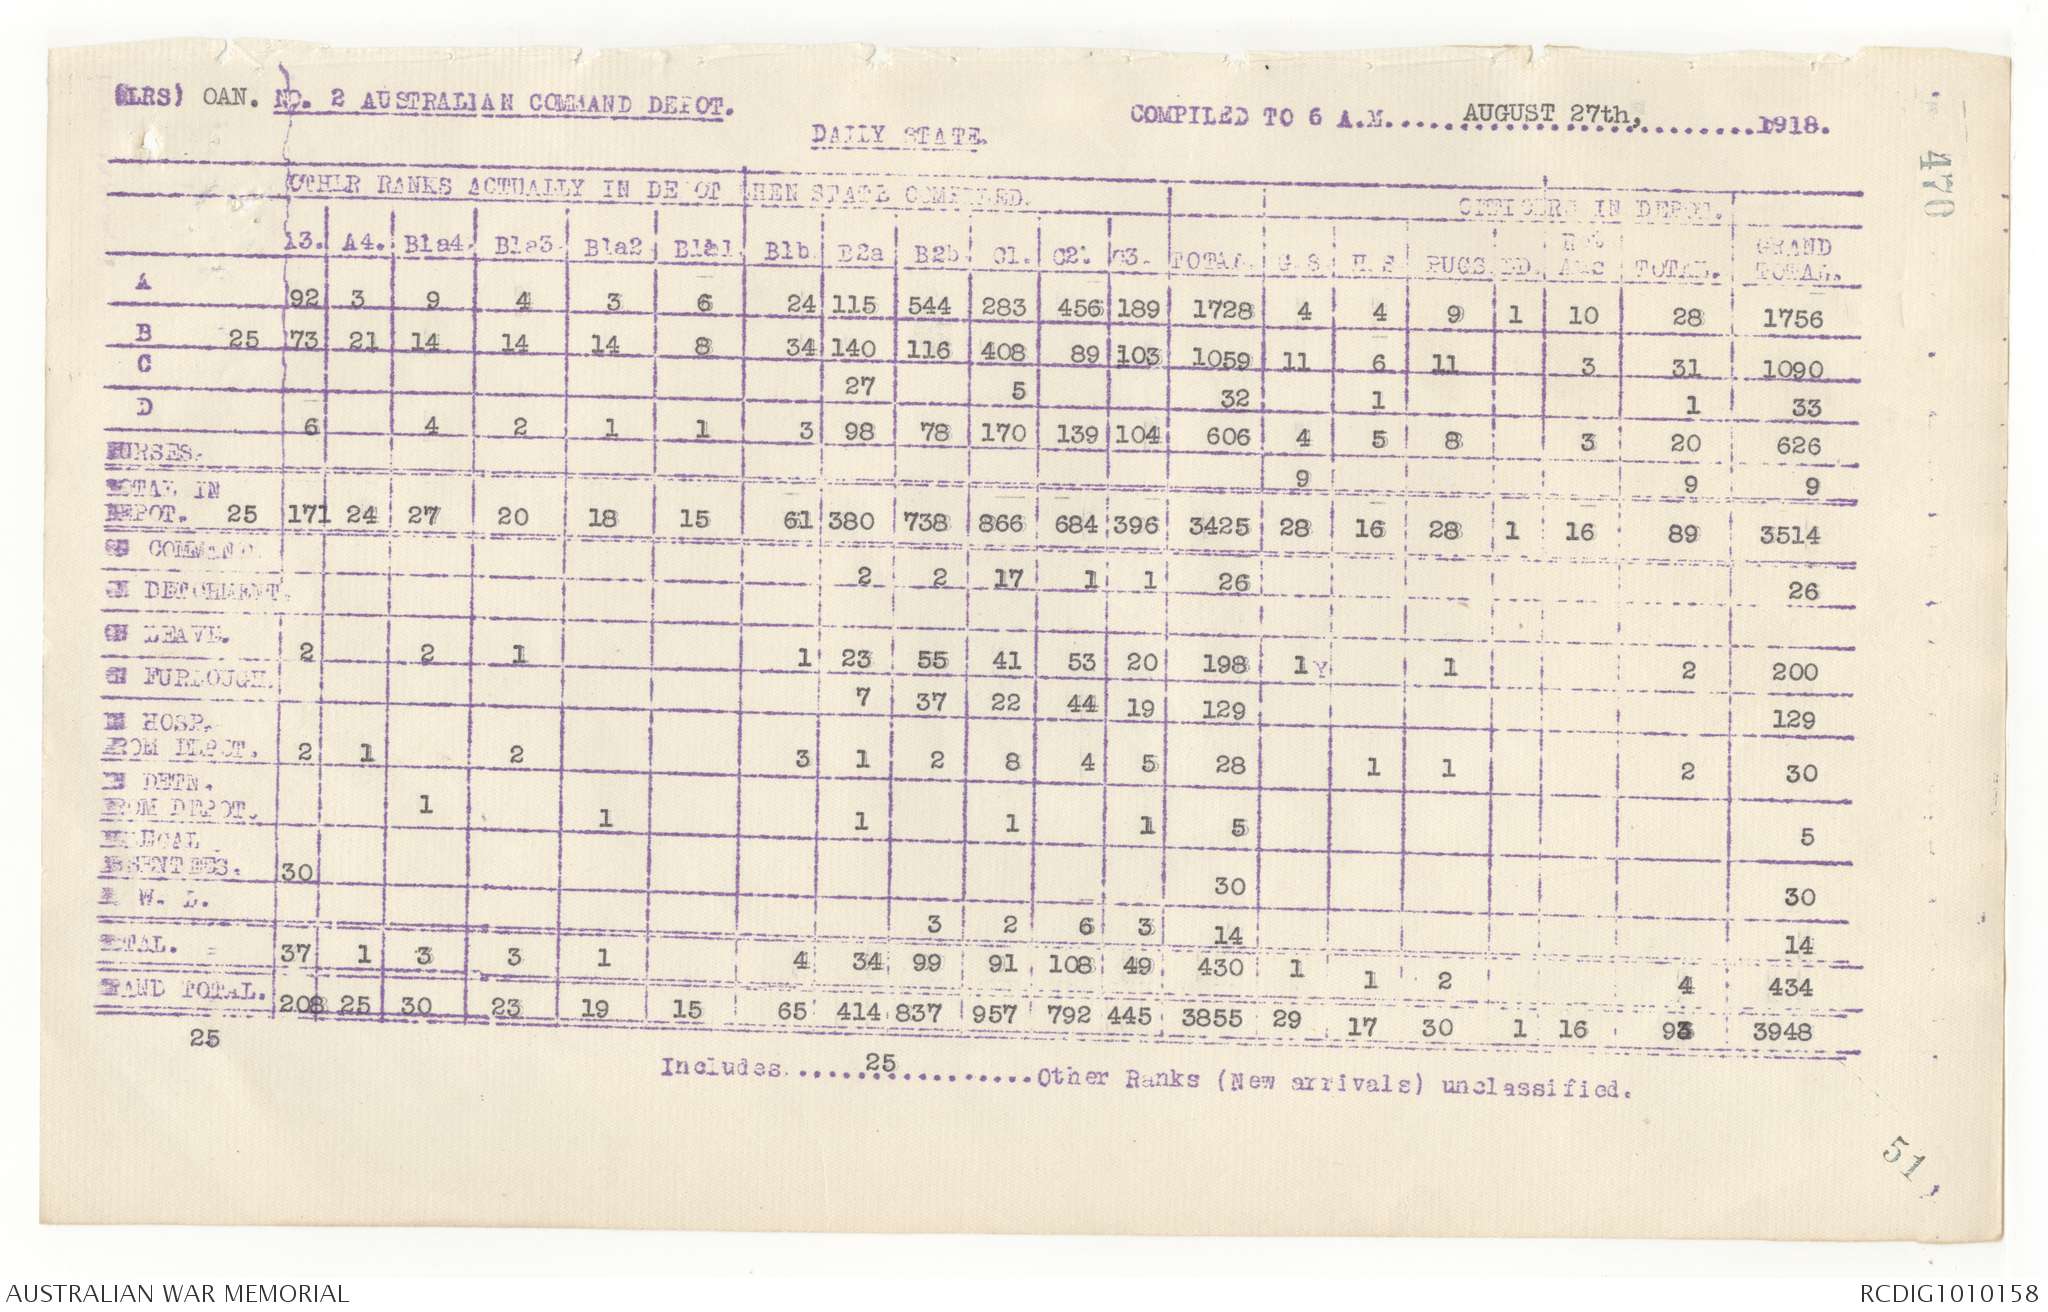 (LRS) OAN. NO. 2 AUSTRALIAN COMMAND DEPOT. COMPILED TO 6 A.M. AUGUST 27th, 1918.
DAILY STATE.
OTHER RANKS ACTUALLY IN DEPOT WHEN STATE COMPILED. OFFICERS IN DEPOT.
A3. A4. B1a4. B1a3. B1a2 B1a1. B1b B2a B2b C1. C2. C3. TOTAL. G.S. H.S PUGS TOTAL. GRAND TOTAL.
A 92 3 9 4 3 6 24 115 544 283 456 189 1728 4 4 9 1 10 28 1756
B 25 73 21 14 14 14 8 34 140 116 408 89 103 1059 11 6 11 3 31 1090
C 27 5 32 1 1 33
D 6 4 2 1 1 3 98 78 170 139 104 606 4 5 8 3 20 626
NURSES. 9 9 9
TOTAL IN
DEPOT. 25 171 24 27 20 18 15 61 380 738 866 684 396 3425 28 16 28 1 16 89 3514
COMMAND. 2 2 17 1 1 26 26
DETCHMENT.
LEAVE. 2 2 1 1 23 55 41 53 20 198 1 Y 1 2 200
FURLOUGH. 7 37 22 44 19 129 129
HOSP.
FROM DEPOT. 2 1 2 3 1 2 8 4 5 28 1 1 2 30
DETN.
FROM DEPOT. 1 1 1 1 1 5 5
ILLEGAL
ABSENTEES. 30 30 30
W. L. 3 2 6 3 14 14
TOTAL. 37 1 3 3 1 4 34 99 91 108 49 430 1 1 2 4 434
GRAND TOTAL. 208 25 30 23 19 15 65 414 837 957 792 445 3855 29 17 30 1 16 93 3948
25
Includes 25 Other Ranks (New arrivals) unclassified.
470
51
AUSTRALIAN WAR MEMORIAL
RCDIG1010158